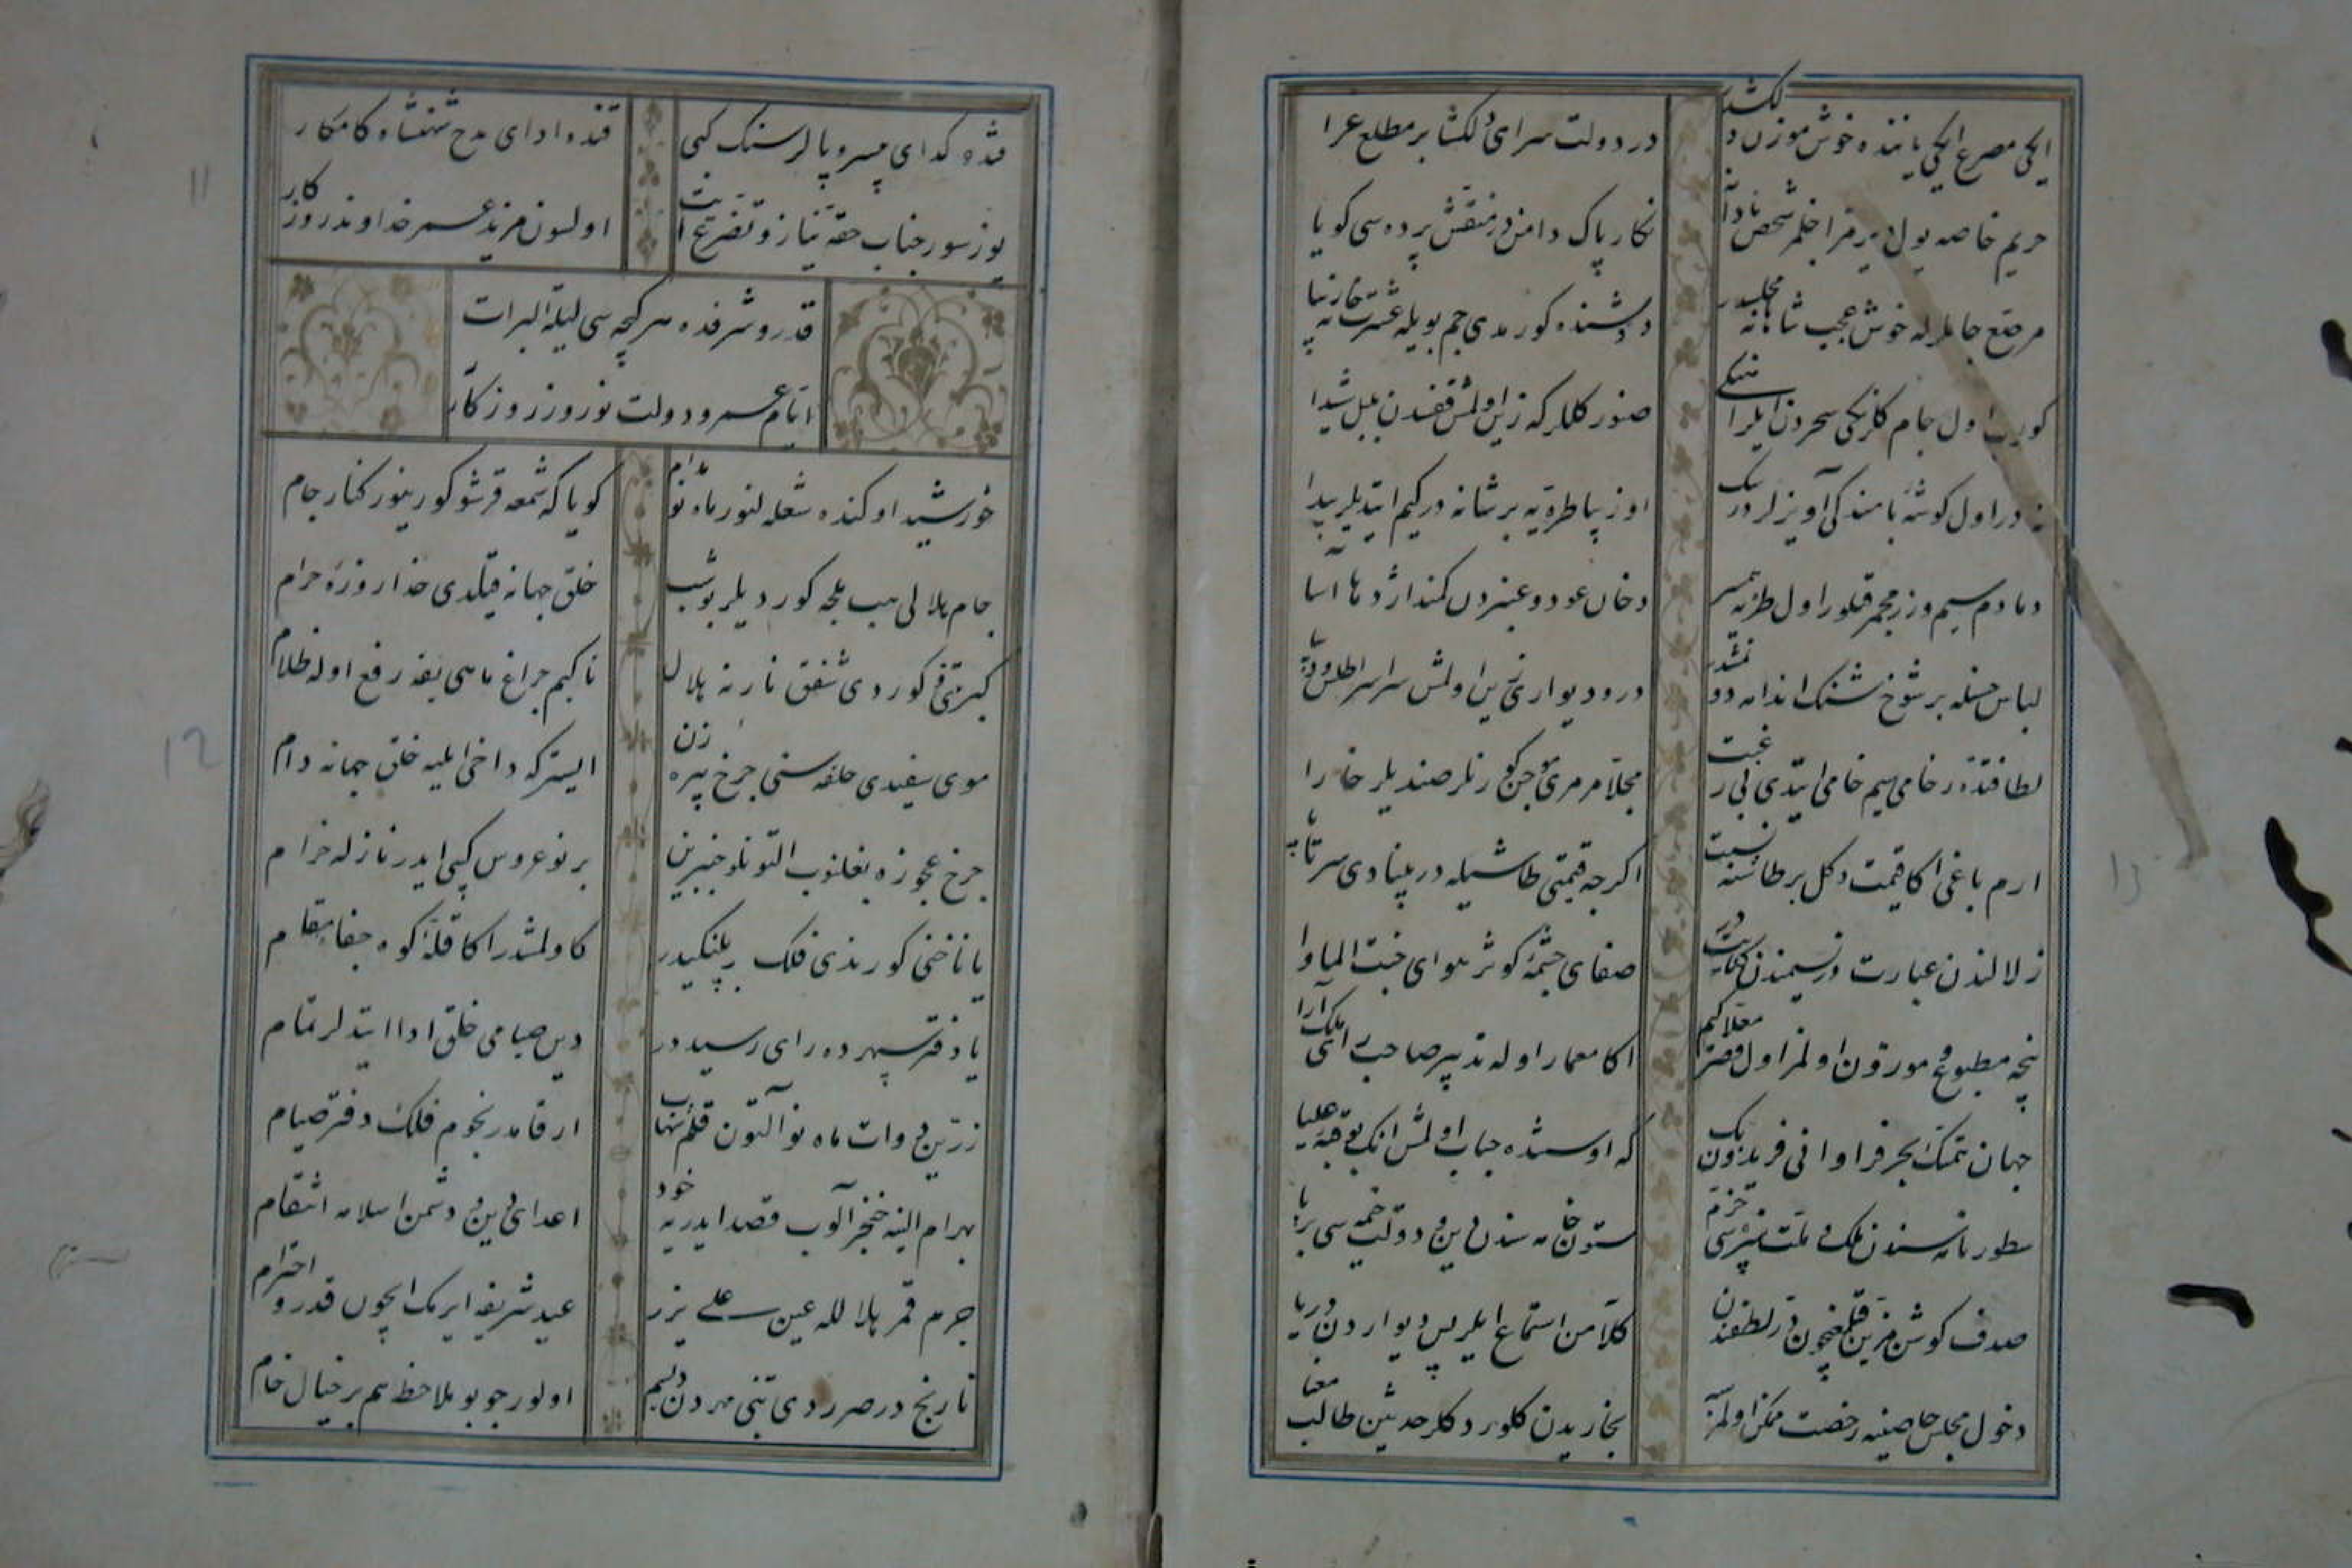 ایکی مصرع ایکی یاننده خوش موزون دلکشدر
در دولت سرای دلکشا بر مطلع غرا
حریم خاصه یول ویرمز اخلر شخص نادانه
نکار پاک دامندر منقش پرده سی کویا
مرصع جاملرله خوش عجب شاهانه مجلسدر
دوشنده کورمدی جم بویله عشرتخانه
کوریب اول جام کلرنکی سحردن ایلر
صنور کللر که زین اولمش قفسدن بلبل شیدا
در اول کوشه بامنده کی آویزلر
اوزیپا طره یه بر شانه در کیم ایتدیلر پیدا
دمادم سیم و زر مجمر قیلور اول طره
دخان عود و عنبردن کمند اژدها آسا
لباس حسنله بر شوخ شنک اندامه دونمشدر
در و دیواری زین اولمش سراسر اطلس و دیبا
لطافتده رخامی سیم خامی ایتدی بی رغبت
مجلا مرمری موجن کورنلر صندیلر خارا
ارم باغی اکا قیمت دکل بر طاشنه نسبت
اکرچه قیمتی طاشیله در بنیادی سر تا پا
زلالندن عبارت در نسیمندن کنایت در
صفای چشمه کوثر هوای جنت الماوا
نجه مطبوع و موزون اولمز اول قصر معلا کیم
اکا معمار اوله تدبیر صاحب رای ملک آرا
جهان تمکن بحر فراوانی فریدون بک
که اوستنده حباب اولمش انک بو قبه علیا
سطور نامه سندن ملک و ملت
ستون خامه سندن دین و دولت خیمه سی بر پا
صدف کوشن مزین قیلمغیچون در لفظندن
کلامن استماع ایلر پس دیواردن دریا
دخول مجلس خاصینه رخصت ممکن اولمز
بخاریدن کلور دکلر حدیثین طالب معنا
قنده کدای بیسر و پالر سنک کبی
قنده ادای مدح شهنشاه کامکار
یوز سور جناب حقه نیاز و تضرع ایت
اولسون مزید عمر خداوند روزکار
قدر و شرفده هر کیجه سی لیلة البرات
ایام عمر و دولت نوروز روزکار
خورشید اوکنده شعله لنور ماه نو مدام
کویا که شمعه قرشو کورینور کنار جام
جام هلالی هب بلجه کوردیلر بو شب
خلق جهانه قیلدی خدا روزه حرام
کبریتنی کوردی شفق نارنه هلال
تا کیم چراغ ماهی یقه رفع اوله ظلام
موی سفیدی حلقه سنی چرخ پیره زن
ایستر که داخی ایلیه خلق جهانه دام
چرخ عجوزه بغلنوب التونلو جنبرین
بر نو عروس کبی ایدر نازله خرام
یا ناخنی کورندی فلک بر پلنکیدر
کاولمشدر اکا قله کوه جفا مقام
یا دفتر سپهرده رای رسیددر
دین صیامی خلق ادا ایتدلر تمام
زرین دوات ماه نو آلتون قلم شهاب
ارقامدر نجوم فلک دفتر صیام
بهرام الینه خنجر آلوب قصد ایدر یه خود
اعدای دین و دشمن اسلامه انتقام
جرم قمر هلالله عین علی یزر
عید شریفه ایرمک ایچون قدر و احترام
نارنج در صرردی تنی مهردن دیسم
اولور جو بو ملاحظه هم بر خیال خام